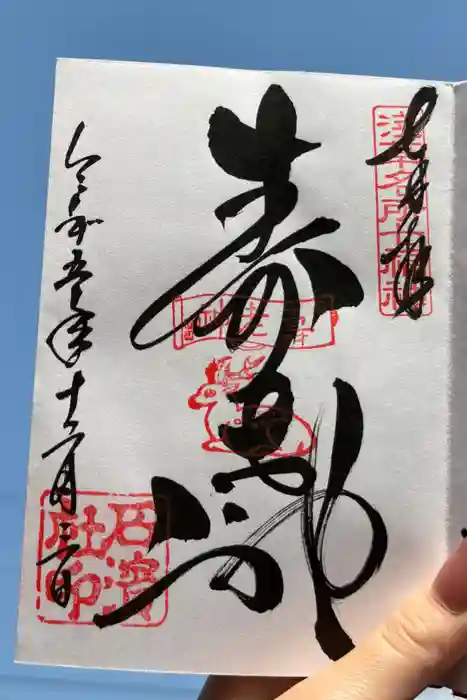 浅草名所七福神
壽老神
令和五年十二月三日
石濱
社印